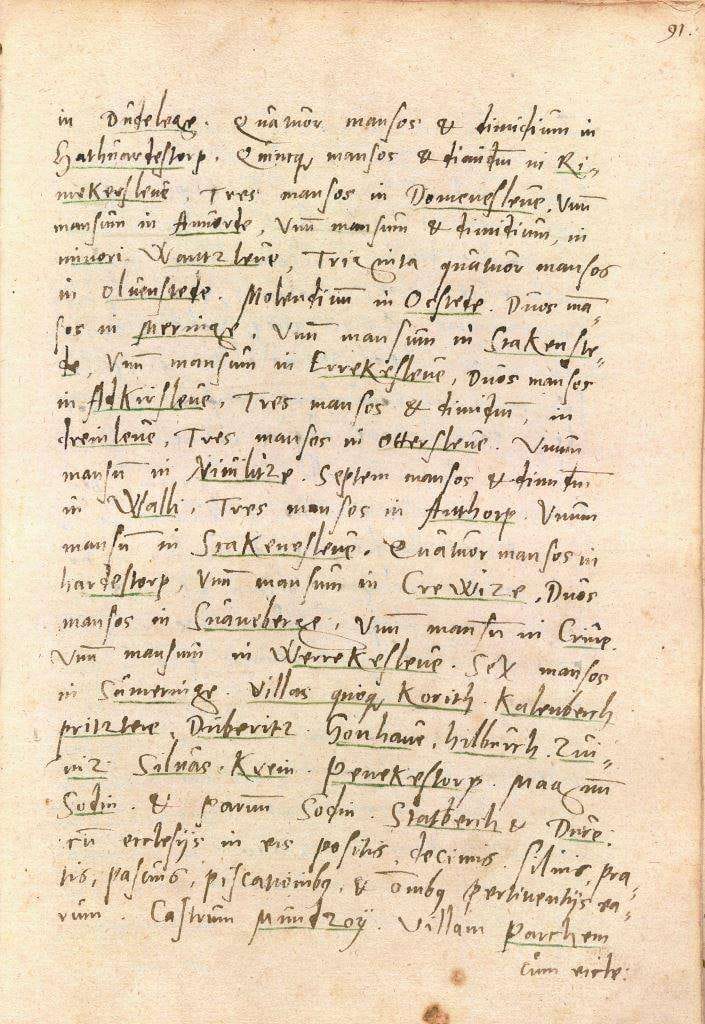 91.
in Dudelege. Quatuor mansos & dimidium in
Hathuardestorp. Quinq mansos & dimidm in Ri-
mekersleue, Tres mansos in Domenesleue, Vnu
mansum in Amuorde, Vnu mansum & dimidium, in
minori Wantzleue, Triginta quatuor mansos
in Oluenstede. Molendinum in Ocstede. Duos ma-
sos in Meringe, Vnu mansum in Stakenste-
de, Vnu mansum in Errekesleue, Duos mansos
in Adkirsleue, Tres mansos & dimidm, in
dreinleue, Tres mansos in Ottersleue. Vnum
mansu in Nimlitze. Septem mansos & dimidm
in Walli, Tres mansos in Anthorp. Vnum
mansu in Stakenesleue. Quatuor mansos in
hardestorp, Vnu mansum in Crewize, Duos
mansos in Suaneberge, Vnu mansu in Crine.
Vnu mansum in Werrekesleue. Sex mansos
in Sumeringe. Villas quoq Korith. Kalenberch
pritztere, Duberitz. Honhaue, hilburch. Zui-
niz. Siluas. Krein. Penekestorp. Magnu
Sodin. & Paruum Sodin. Statberch & Dure.
cu ecclesijs in eis positis, decimis siluis, pra-
tis, pascuis, piscationibq, & omibq pertinentijs ea-
rum. Castrum Mundzoy. Villam Parchem
cum eicle: